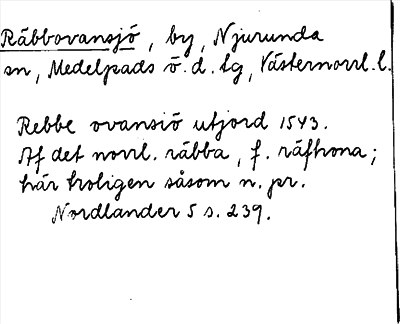 Räbbovansjö, by, Njurunda
sn, Medelpads ö. d. tg, Västernorrl. l.
Rebbe ovansiö utjord 1543.
Af det norrl. räbba, f. räfhona;
här troligen såsom n. pr.
Nordlander 5 s. 239.